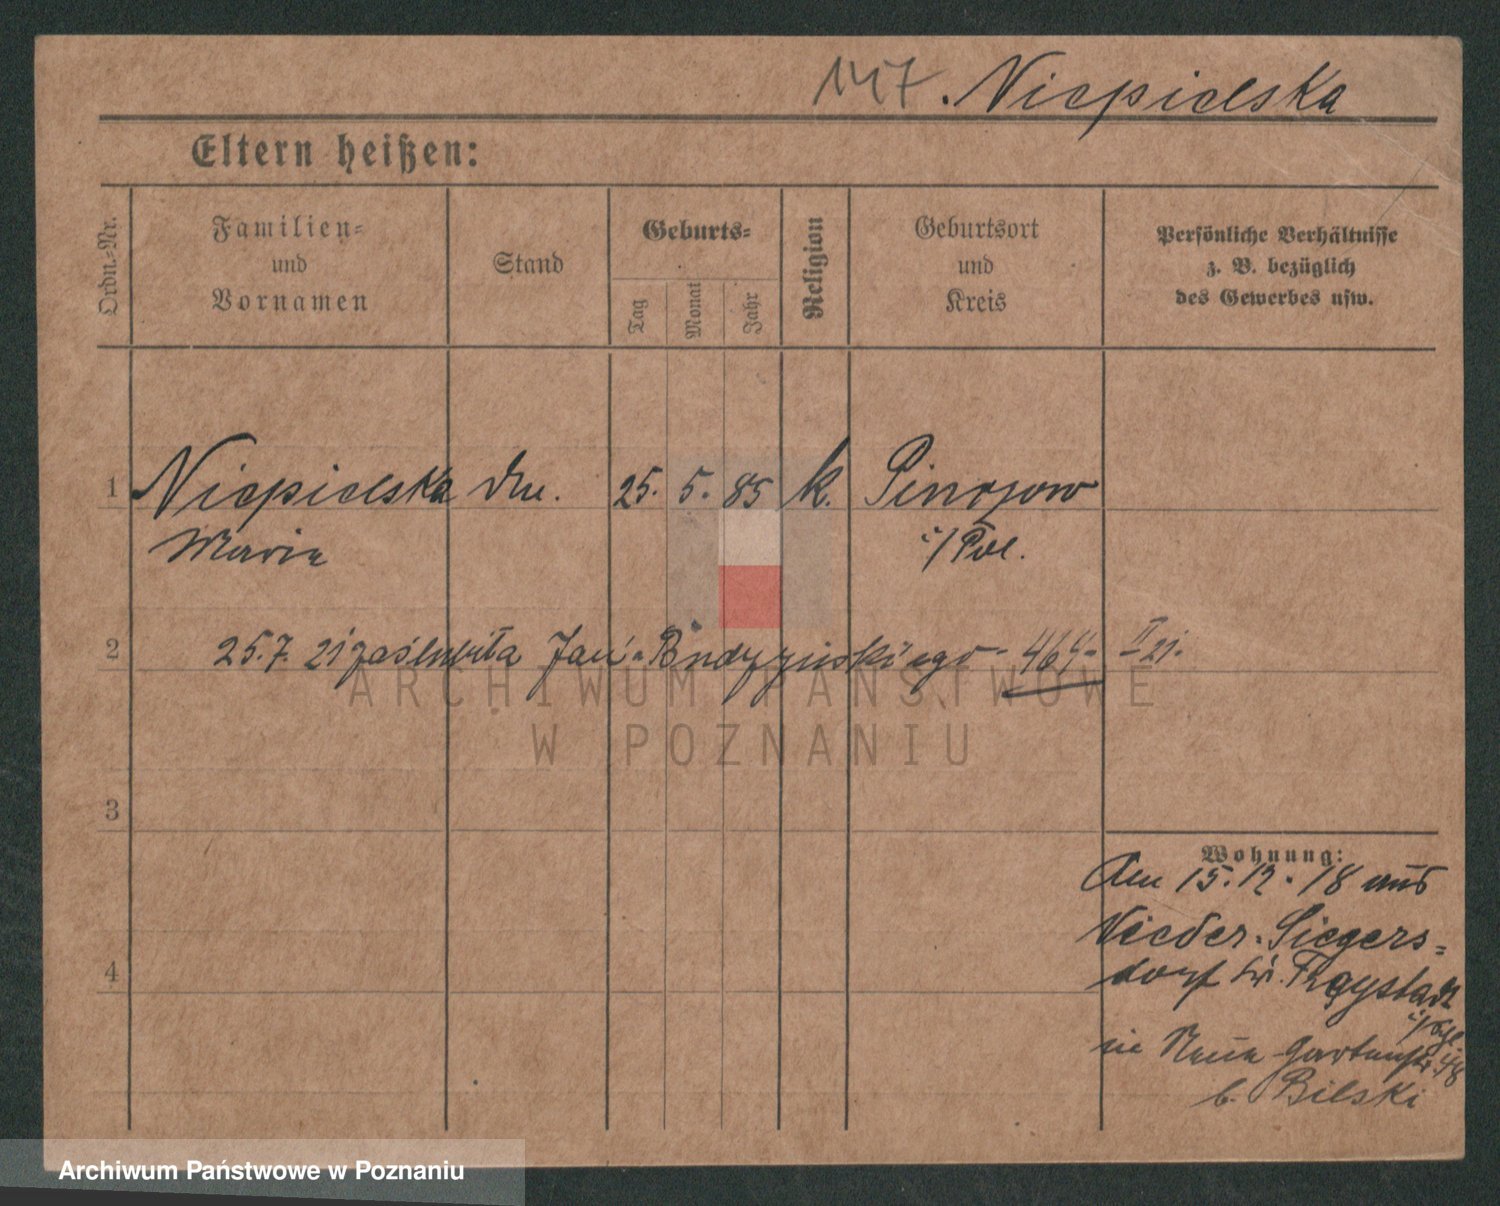 147. Niepielska
Eltern heißen:
Ordn.-Nr.
Familien-
und
Vornamen
Stand
Geburts-
Tag
Monat
Jahr
Religion
Geburtsort
und
Kreis
Persönliche Verhältnisse
z. B. bezüglich
des Gewerbes usw.
1 Niepielska 25. 5. 85 k.
Maria i/Pol.
2 25.7. 21 zaślubiła Jan 464 II 21.
3
4
Wohnung:
Am 15.12.18 aus
Nieder-Siegers-
dorf Kr. Freystadt
in Neue Gartenstr. 48
b. Bilski
ARCHIWUM PAŃSTWOWE
W POZNANIU
Archiwum Państwowe w Poznaniu